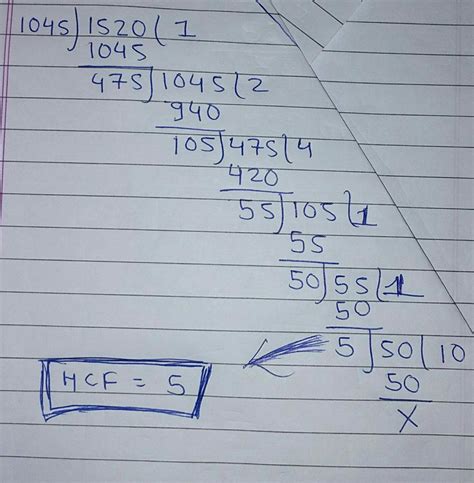 1045)1520(1
1045
475)1045(2
940
105)475(4
420
55)105(1
55
50)55(1
50
5)50(10
50
X
HCF = 5